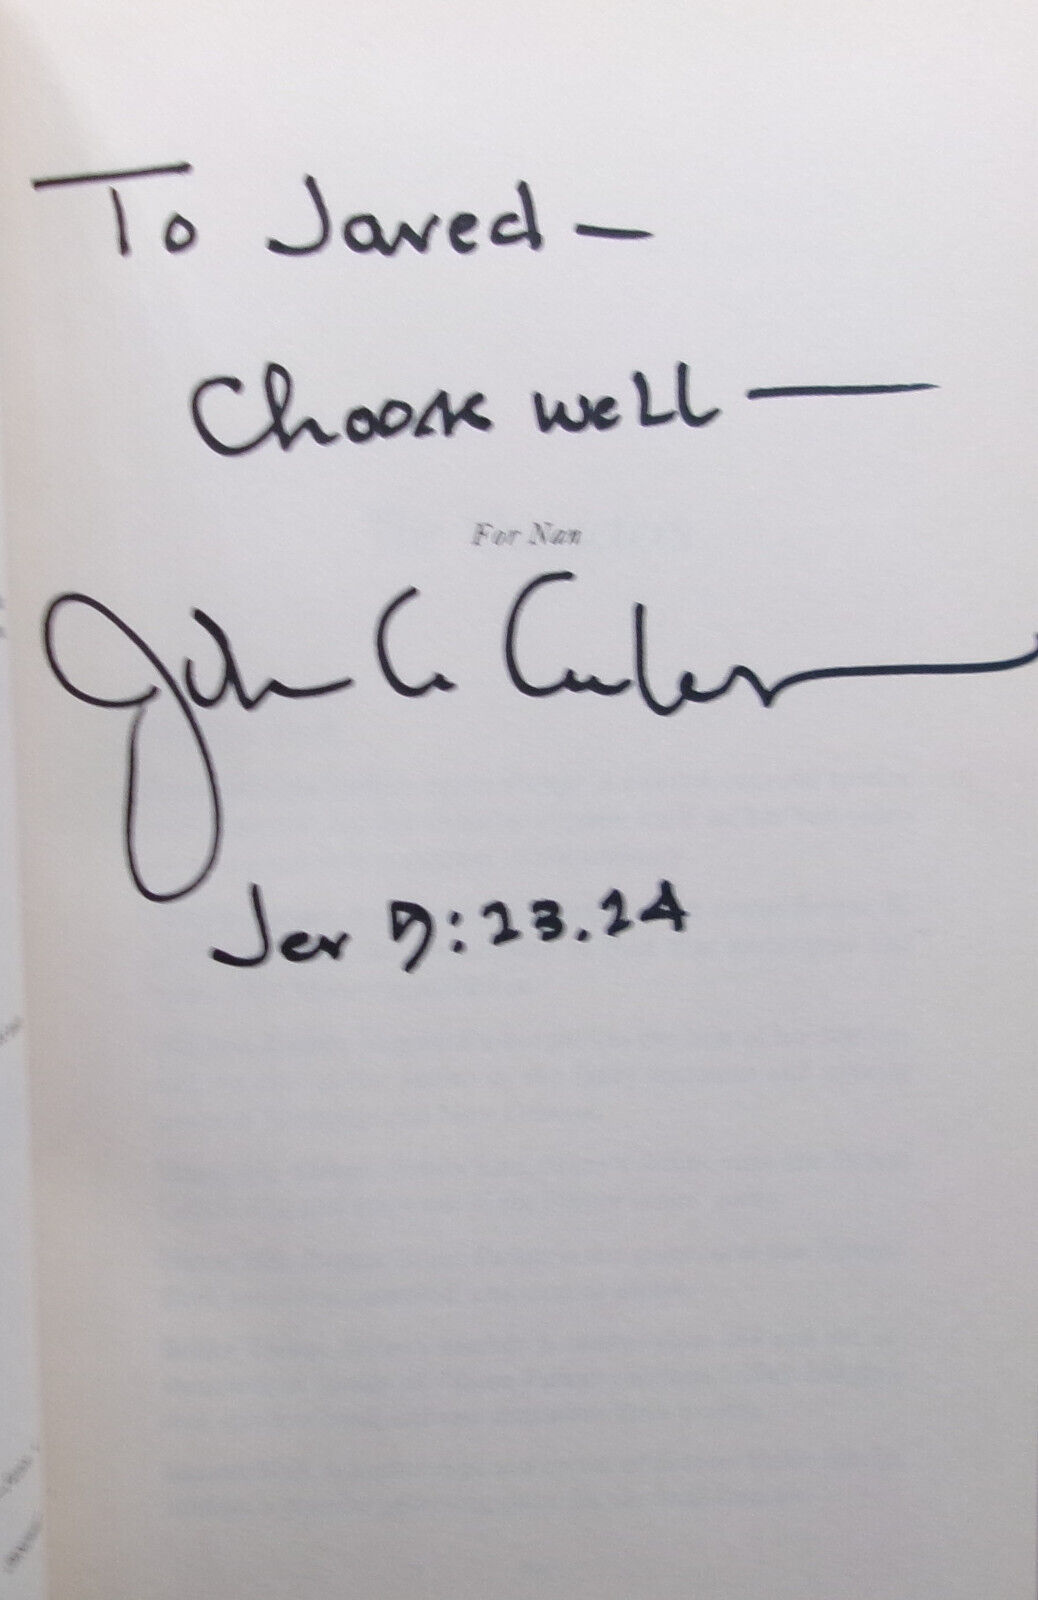 To Jared —
Choose well —
For Nan
John C
Jer 9:23.24